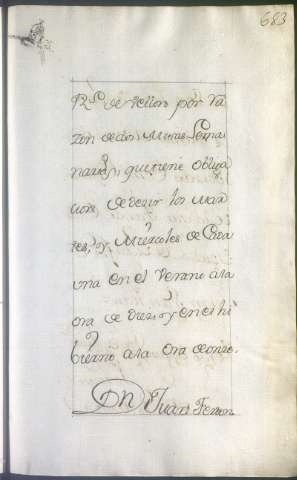 683
Rs. de vellon por ra
zon de dos Misas Sema
narias, que tiene obliga
cion, de decir los Mar
tes, y Miercoles de Cada
una en el Verano a la
ora de diez, y en el hi
bierno a la Ora de onze.
Dn Juan Ferron